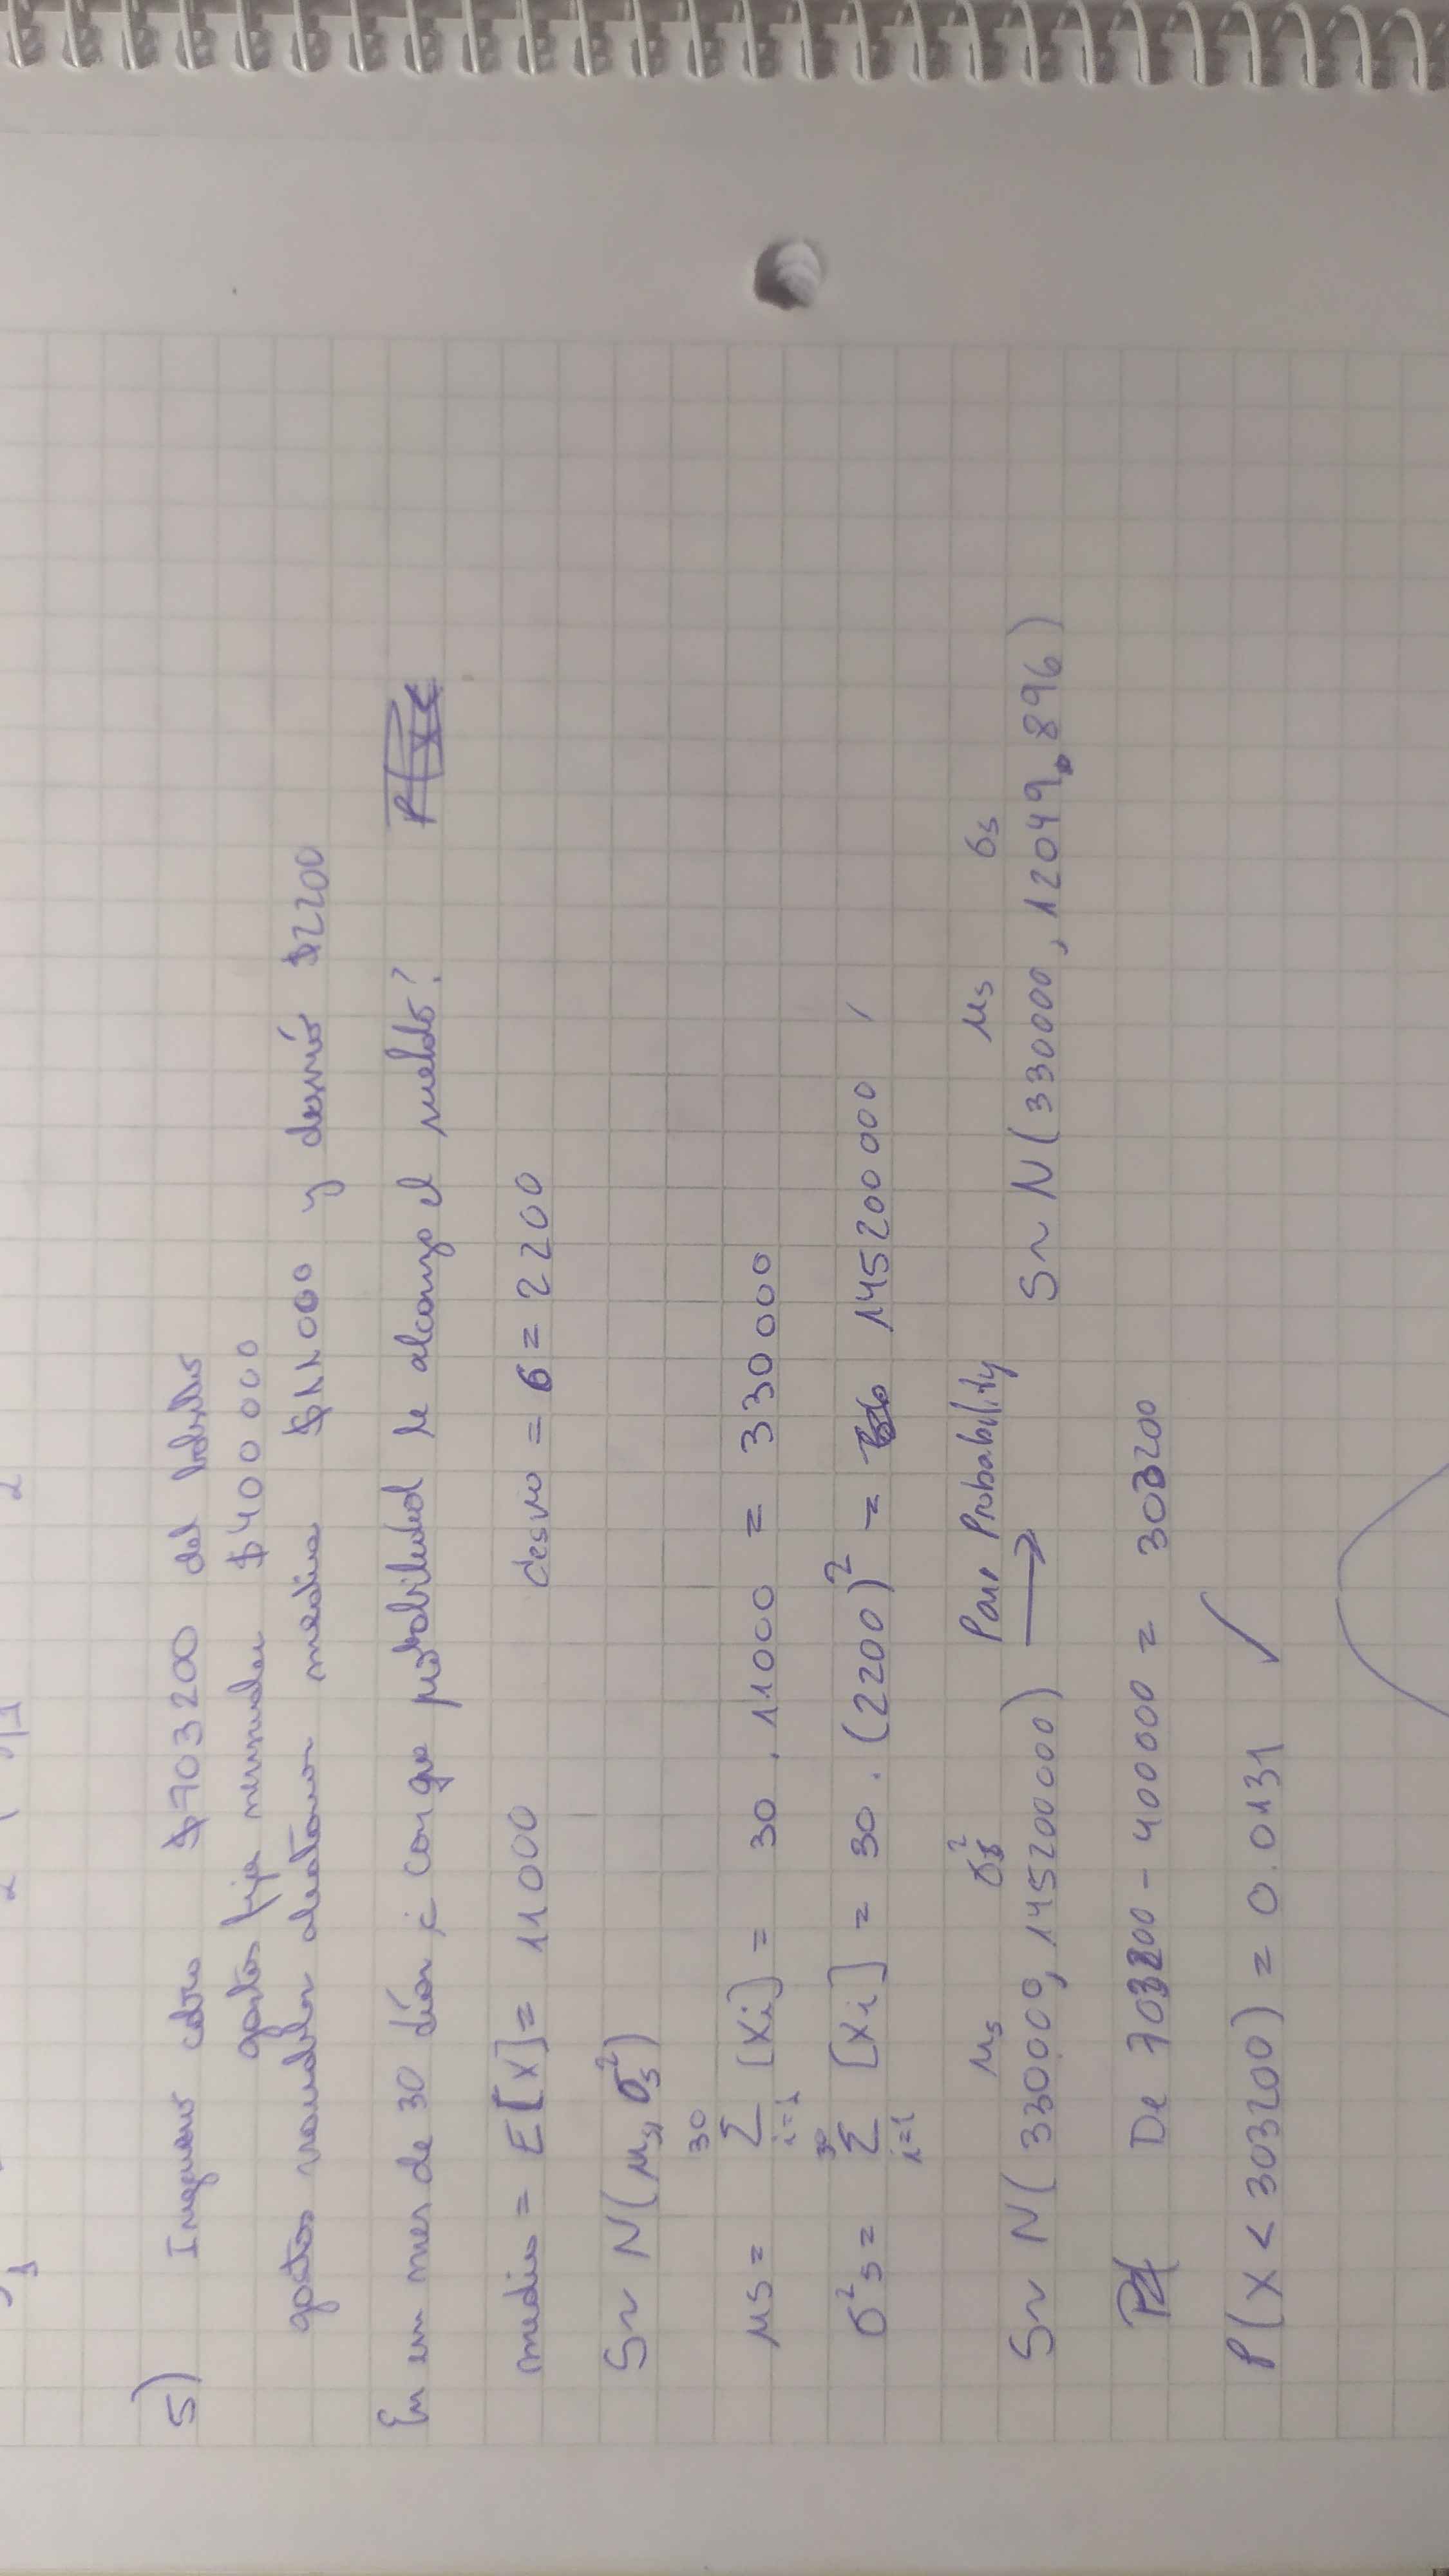 5) Ingeniero cobra $703200 del laburo
gastos fijos mensuales $400000
gastos variables aleatorios media $11000 y desvío $2200
En un mes de 30 días ¿con que probabilidad le alcanza el sueldo?
media = E[X] = 11000 desvío = σ = 2200
S ~ N(μs, σs²)
μs = 30 Σ i=1 [Xi] = 30 . 11000 = 330000
σ²s = 30 Σ i=1 [Xi] = 30 . (2200)² = 145200000
μs σs² Para Probability μs σs
S ~ N(330000, 145200000) → S ~ N(330000, 12049.896)
De 703200 - 400000 = 303200
P(X < 303200) = 0.0131 ✓